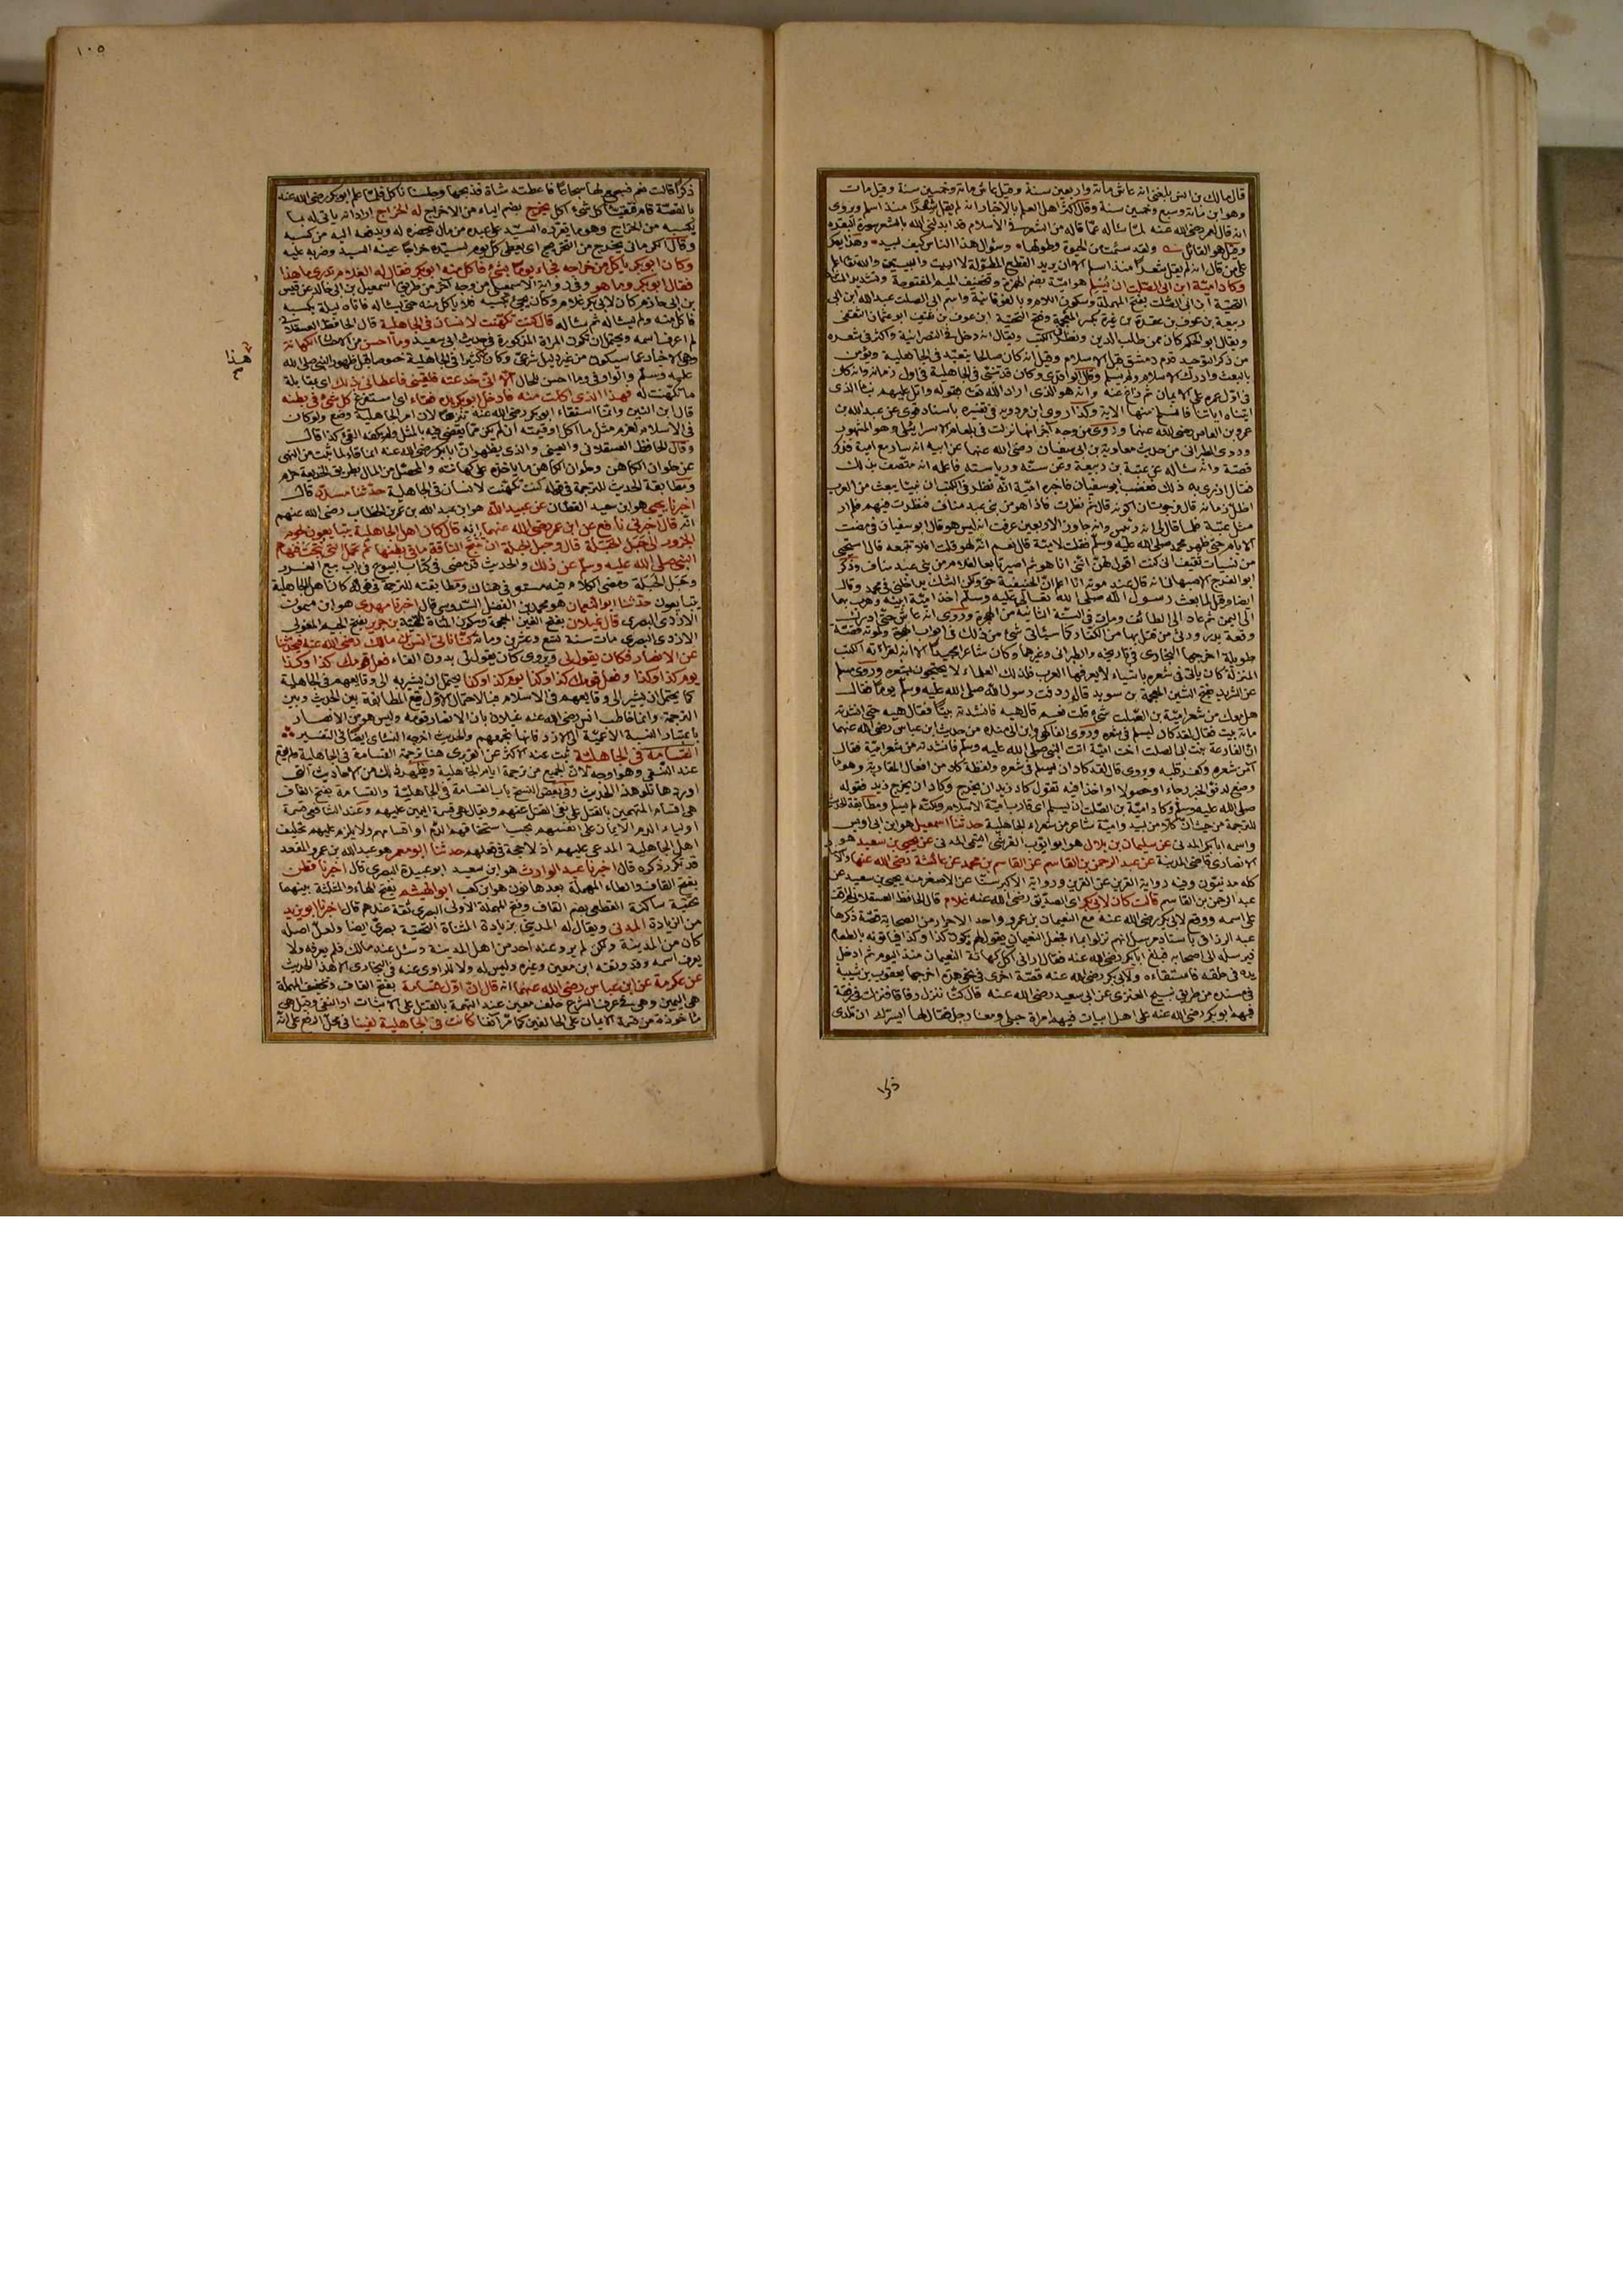 قال مالك بن انس بلغنى انه عاش مائة واربعين سنة وقيل عاش مائة وخمسين سنة وقيل مات
وهو ابن مائة وسبع وخمسين سنة وقال اكثر اهل العلم بالاخبار انه لم يقل شعرا منذ اسلم ويروى
انه قال لعمر رضى الله عنه لما سأله عما قاله من الشعر فى الاسلام قد ابدلنى الله بالشعر سورة البقرة
وقيل هو القائل ولقد سئمت من الحيوة وطولها وسؤال هذا الناس كيف لبيد وهذا يعكر
على من قال انه لم يقل شعرا منذ اسلم الا ان يريد القطع المطولة لا البيت والبيتين والله تعالى اعلم
وكاد امية ابن ابى الصلت ان يسلم هو امية بضم الهمزة وتخفيف الميم المفتوحة وتشديد المثناة
التحتية ابن ابى الصلت بفتح المهملة وسكون اللام وبالفوقانية واسم ابى الصلت عبد الله ابن ابى
ربيعة بن عوف بن عقدة بن غيرة بكسر المعجمة وفتح التحتية ابن عوف بن ثقيف ابو عثمان الثقفى
ويقال ابو الحكم كان ممن طلب الدين ونظر فى الكتب ويقال انه دخل فى النصرانية واكثر فى شعره
من ذكر التوحيد قدم دمشق قبل الاسلام وقيل انه كان صالحا يتعبد فى الجاهلية ويؤمن
بالبعث وادرك الاسلام ولم يسلم وقال الواقدى وكان قد تنبى فى الجاهلية فى اول زمانه وانه كان
فى اول عمره على الايمان ثم زاغ عنه وانه هو الذى اراد الله بقوله واتل عليهم نبأ الذى
اتيناه اياتنا فانسلخ منها الاية وكذا روى ابن مردويه فى تفسيره باسناد قوى عن عبد الله بن
عمرو بن العاص رضى الله عنهما وروى من وجه آخر انها نزلت فى بلعام الاسرائيلى وهو المشهور
وروى الطبرانى من حديث معاوية بن ابى سفيان رضى الله عنهما عن ابيه انه سافر مع امية فذكر
قصة وانه سأله عن عتبة بن ربيعة وعن سنه ورياسته فاعلمه انه متصف بذلك
فقال ازرى به ذلك فغضب ابو سفيان فاخبره امية انه نظر فى الكتب ان نبيا يبعث من العرب
اظل زمانه قال فرجوت ان اكونه قال ثم نظرت فاذا هو من بنى عبد مناف فنظرت فيهم فلم ار
مثل عتبة فلما قال لى انه رئيس وانه جاوز الاربعين عرفت انه ليس هو قال ابو سفيان فما مضت
الايام حتى ظهر محمد صلى الله عليه وسلم فقلت لامية قال نعم انه لهو قلت افلا تتبعه قال استحيى
من نسيات ثقيف انى كنت اقول لهن اننى انا هو ثم اصير تابعا لغلام من بنى عبد مناف وذكر
ابو الفرج الاصبهانى انه قال عند موته انا اعلم ان الحنيفية حق ولكن الشك يداخلنى فى محمد وقال
ايضا وقيل لما بعث رسول الله صلى الله تعالى عليه وسلم اخذ امية ابنيه وهرب بهما
الى اليمن ثم عاد الى الطائف ومات فى السنة الثانية من الهجرة وروى انه عاش حتى ادرك
وقعة بدر ورثى من قتل بها من الكفار كما سيأتى شئ من ذلك فى ابواب الهجرة ولموته قصة
طويلة اخرجها البخارى فى تاريخه والطبرانى وغيرهما وكان شاعرا مجيدا الا انه لقراءته الكتب
المنزلة كان يأتى فى شعره باشياء لا يعرفها العرب فلذلك العلماء لا يحتجون بشعره وروى مسلم
عن الشريد بفتح الشين المعجمة بن سويد قال ردفت رسول الله صلى الله عليه وسلم يوما فقال
هل معك من شعر امية بن الصلت شئ قلت نعم قال هيه فانشدته بيتا فقال هيه حتى انشدته
مائة بيت فقال لقد كاد ليسلم فى شعره وروى الفاكهى وابن منده من حديث ابن عباس رضى الله عنهما
ان الفارعة بنت ابى الصلت اخت امية اتت النبى صلى الله عليه وسلم فانشدته من شعر امية فقال
آمن شعره وكفر قلبه ويروى قال لقد كاد ان ليسلم فى شعره ولفظة كاد من افعال المقاربة وهو ما
وضع لدنو الخبر رجاء او حصولا او اخذا فيه تقول كاد زيد ان يخرج وكاد ان يخرج زيد فقوله
صلى الله عليه وسلم وكاد امية بن الصلت ان يسلم اى قارب امية الاسلام ولكنه لم يسلم ومطابقة الحديث
للترجمة من حيث ان كلا من لبيد وامية شاعر من شعراء الجاهلية حدثنا اسمعيل هو ابن ابى اويس
واسمه ابا بكر المدنى عن سليمان بن بلال هو ابو ايوب القرشى التيمى المدنى عن يحيى بن سعيد هو
الانصارى قاضى المدينة عن عبد الرحمن بن القاسم عن القاسم بن محمد عن عائشة رضى الله عنها
كله مدنيون وفيه رواية القرين عن القرين ورواية الاكبر سنا عن الاصغر منه يحيى بن سعيد عن
عبد الرحمن بن القاسم قالت كان لابى بكر اى الصديق رضى الله عنه غلام قال الحافظ العسقلانى لم اقف
على اسمه ووقع لابى بكر رضى الله عنه مع النعيمان بن عمرو واحد الاحرار من الصحابة قصة ذكرها
عبد الرزاق باسناد مرسل انهم نزلوا بماء فجعل النعيمان يقول لهم يكون كذا وكذا فيأتونه بالطعام
فيرسله الى اصحابه فبلغ ابا بكر رضى الله عنه فقال ارانى آكل كهانة النعيمان منذ اليوم ثم ادخل
يده فى حلقه فاستقاءه ولابى بكر رضى الله عنه قصة اخرى فى نحو هذا اخرجها يعقوب بن شيبة
فى مسنده من طريق نبيح العنزى عن ابى سعيد رضى الله عنه قال كنا ننزل رفاقا فنزلت فى رفقة
فيها ابو بكر رضى الله عنه على اهل ابيات فيهم امرأة حبلى ومعنا رجل فقال لها ايسرك ان تلدى
ذكرا
١٠٥
ذكرا قالت نعم فسجع لها اسجاعا فاعطته شاة فذبحها وجلسنا نأكل فلما علم ابو بكر رضى الله عنه
بالقصة قام فتقيأ كل شئ اكل يخرج بضم الياء من الاخراج له الخراج اراد انه يأتى له بما
يكسبه من الخراج وهو ما يقرره السيد على عبده من مال يحضره له ويدفعه اليه من كسبه
وقال الكرمانى يخرج من التخريج اى يعطى كل يوم لسيده خراجا عينه السيد وضربه عليه
وكان ابو بكر يأكل من خراجه فجاء يوما بشئ فاكل منه ابو بكر فقال له الغلام تدرى ما هذا
فقال ابو بكر وما هو وفى رواية الاسمعيلى من وجه آخر من طريق اسمعيل بن ابى خالد عن قيس
بن ابى حازم كان لابى بكر غلام وكان يجئ بكسبه فلا يأكل منه حتى يسأله فاتاه ليلة بكسبه
فاكل منه ولم يسأله ثم سأله قال كنت تكهنت لانسان فى الجاهلية قال الحافظ العسقلانى
لم اعرف اسمه ويحتمل ان تكون المرأة المذكورة فى حديث ابى سعيد وما احسن من الاحسان الكهانة
وهى الاخبار عما سيكون من غير دليل شرعى وكان كثيرا فى الجاهلية خصوصا قبل ظهور النبى صلى الله
هذا
عليه وسلم والواو فى وما احسن للحال الا انى خدعته فلقينى فاعطانى بذلك اى بمقابلة
ما تكهنت له فهذا الذى اكلت منه فادخل ابو بكر يده فقاء اى استفرغ كل شئ فى بطنه
قال ابن التين وانما استقاء ابو بكر رضى الله عنه تنزها لان امر الجاهلية وضع ولو كان
فى الاسلام لغرم مثل ما اكل او قيمته ان لم يكن مما يقضى فيه بالمثل ولم يكفه القئ كذا قال
وقال الحافظ العسقلانى والعينى والذى يظهر ان ابا بكر رضى الله عنه انما قاء لما ثبت من النهى
عن حلوان الكاهن وحلوان الكاهن ما يأخذه على كهانته والمحصل من المال بطريق الخديعة حرام
ومطابقة الحديث للترجمة فى قوله كنت تكهنت لانسان فى الجاهلية حدثنا مسدد قال
اخبرنا يحيى هو ابن سعيد القطان عن عبيد الله هو ابن عبد الله بن عمر بن الخطاب رضى الله عنهم
انه قال اخبرنى نافع عن ابن عمر رضى الله عنهما انه قال كان اهل الجاهلية يتبايعون لحوم
الجزور الى حبل الحبلة قال وحبل الحبلة ان تنتج الناقة ما فى بطنها ثم تحمل التى نتجت فنهاهم
النبى صلى الله عليه وسلم عن ذلك والحديث قد مضى فى كتاب البيوع فى باب بيع الغرر
وحبل الحبلة ومضى الكلام فيه مستوفى هناك ومطابقته للترجمة فى قوله كان اهل الجاهلية
يتبايعون حدثنا ابو النعمان هو محمد بن الفضل السدوسى قال اخبرنا مهدى هو ابن ميمون
الازدى البصرى قال غيلان بفتح الغين المعجمة وسكون المثناة التحتية بن جرير بفتح الجيم المعولى
الازدى البصرى مات سنة تسع وعشرين ومائة كنا نأتى انس بن مالك رضى الله عنه فيحدثنا
عن الانصار فكان يقول لى ويروى كان يقول لى بدون الفاء فعل قومك كذا وكذا
يوم كذا وكذا وفعل قومك كذا وكذا يوم كذا وكذا يحتمل ان يشير به الى وقايعهم فى الجاهلية
كما يحتمل ان يشير الى وقايعهم فى الاسلام فبالاحتمال الاول تقع المطابقة بين الحديث وبين
الترجمة وانما خاطب انس رضى الله عنه غيلان بان الانصار قومه وليس هو من الانصار
باعتبار النسبة الاعمية الى الازد فانها تجمعهم والحديث اخرجه النسائى ايضا فى التفسير
القسامة فى الجاهلية ثبت عند الاكثر عن الفربرى هنا ترجمة القسامة فى الجاهلية ولم يقع
عند النسفى وهو اوجه لان الجميع من ترجمة ايام الجاهلية ويظهر ذلك من الاحاديث التى
اوردها تلو هذا الحديث وفى بعض النسخ باب القسامة فى الجاهلية والقسامة بفتح القاف
هى اقسام المتهمين بالقتل على نفى القتل عنهم ويقال هى قسمة اليمين عليهم وعند الشافعى قسمة
اولياء الدم الايمان على انفسهم بحسب استحقاقهم الدم او اقسامهم ولا يلزم عليهم تحليف
اهل الجاهلية المدعى عليهم اذ لا حجة فى فعلهم حدثنا ابو معمر هو عبد الله بن عمرو المقعد
قد تكرر ذكره قال اخبرنا عبد الوارث هو ابن سعيد ابو عبيدة البصرى قال اخبرنا قطن
بفتح القاف والطاء المهملة بعدها نون هو ابن كعب ابو الهيثم بفتح الهاء والمثلثة بينهما
تحتية ساكنة القطعى بضم القاف وفتح المهملة الاولى البصرى ثقة عندهم قال اخبرنا ابو يزيد
من الزيادة المدنى ويقال له المدينى بزيادة المثناة التحتية بصرى ايضا ولعل اصله
كان من المدينة ولكن لم يرو عنه احد من اهل المدينة وسئل عنه مالك فلم يعرفه ولا
يعرف اسمه وقد وثقه ابن معين وغيره وليس له ولا للراوى عنه فى البخارى الا هذا الحديث
عن عكرمة عن ابن عباس رضى الله عنهما انه قال ان اول قسامة بفتح القاف وتخفيف المهملة
هى اليمين وهى فى عرف الشرع حلف معين عند التهمة بالقتل على الاثبات او النفى وقيل هى
مأخوذة من قسمة الايمان على الحالفين كما مر آنفا كانت فى الجاهلية لفينا فى محل الرفع على انه